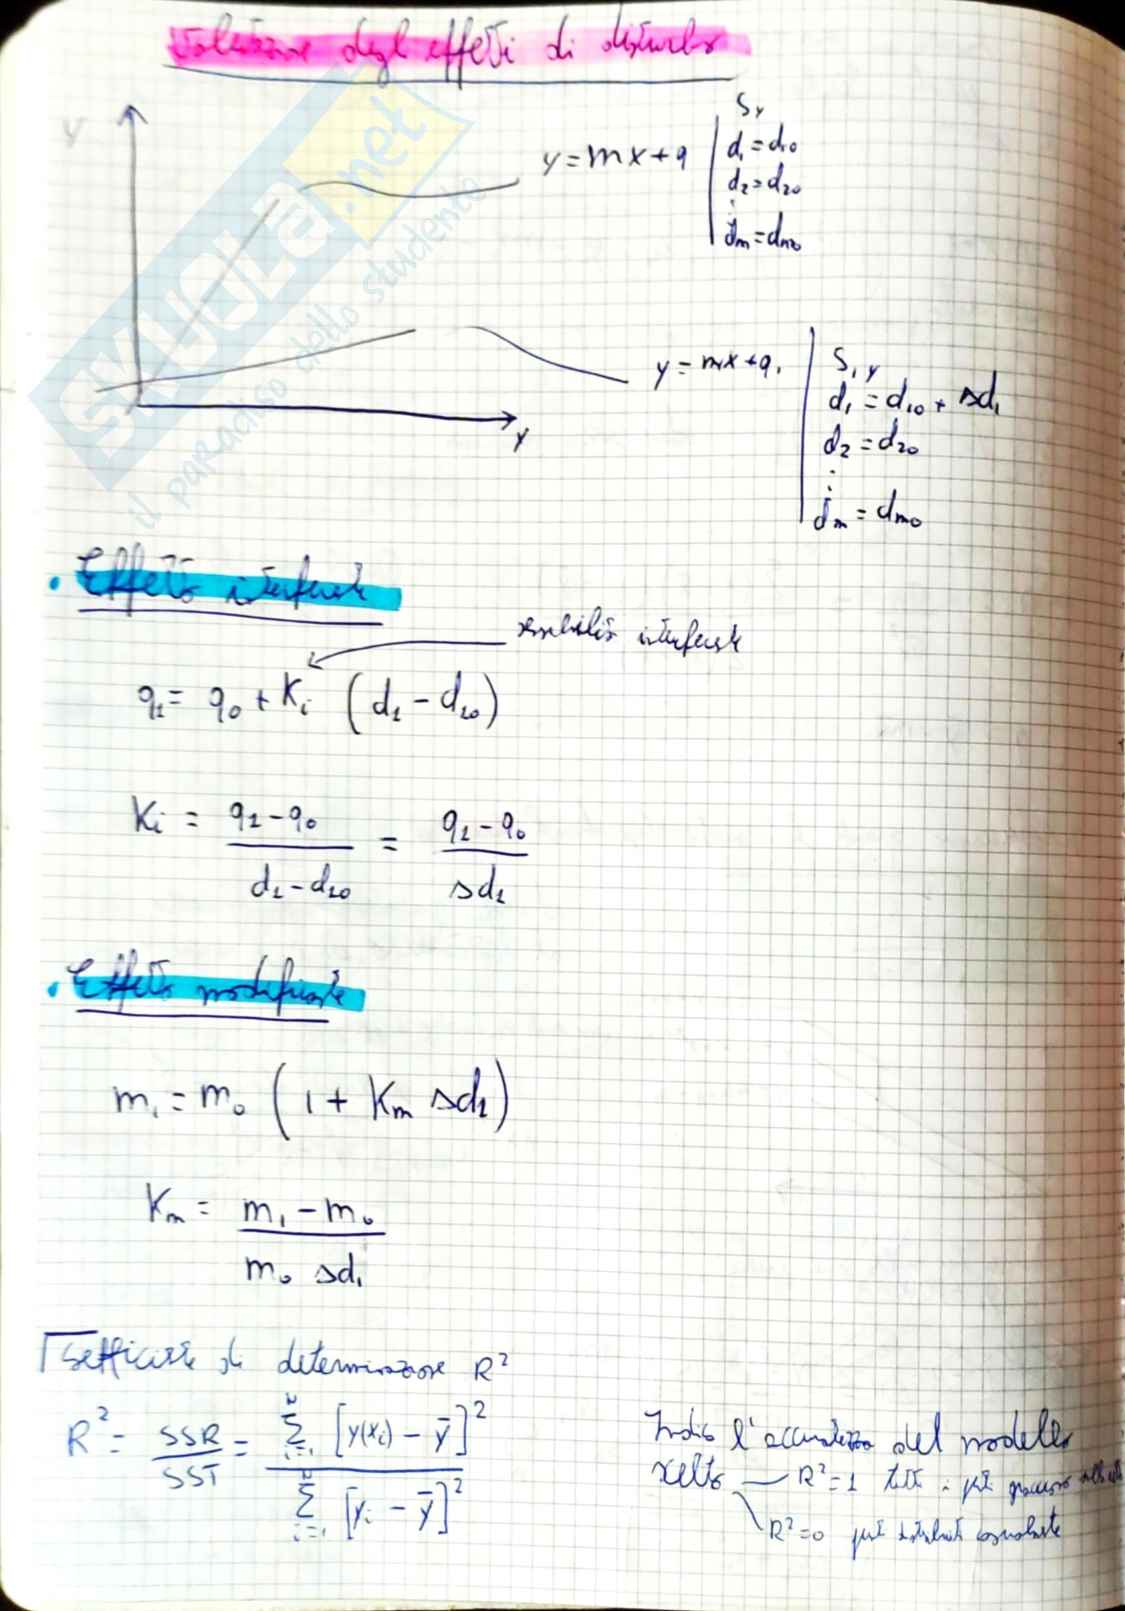 Valutazione degli effetti di disturbo
Y
y = mx + q
S, y
d₁ = d₁₀
d₂ = d₂₀
⋮
dm = dm₀
y = mx + q₁
S₁, y
d₁ = d₁₀ + Δd₁
d₂ = d₂₀
⋮
dm = dm₀
SKUOLA.net
il paradiso dello studente
• Effetto interferente
sensibilità interferente
q₁ = q₀ + Kᵢ (d₁ - d₁₀)
Kᵢ = (q₁ - q₀) / (d₁ - d₁₀) = (q₁ - q₀) / Δd₁
• Effetto modificante
m₁ = m₀ (1 + Km Δd₁)
Km = (m₁ - m₀) / (m₀ Δd₁)
di determinazione R²
R² = SSR / SST = Σᵢ₌₁ᴺ [y(xᵢ) - ȳ]² / Σᵢ₌₁ᴺ [yᵢ - ȳ]²
Indica l'accuratezza del modello
scelto — R² = 1 tutti i pti
R² = 0 pti